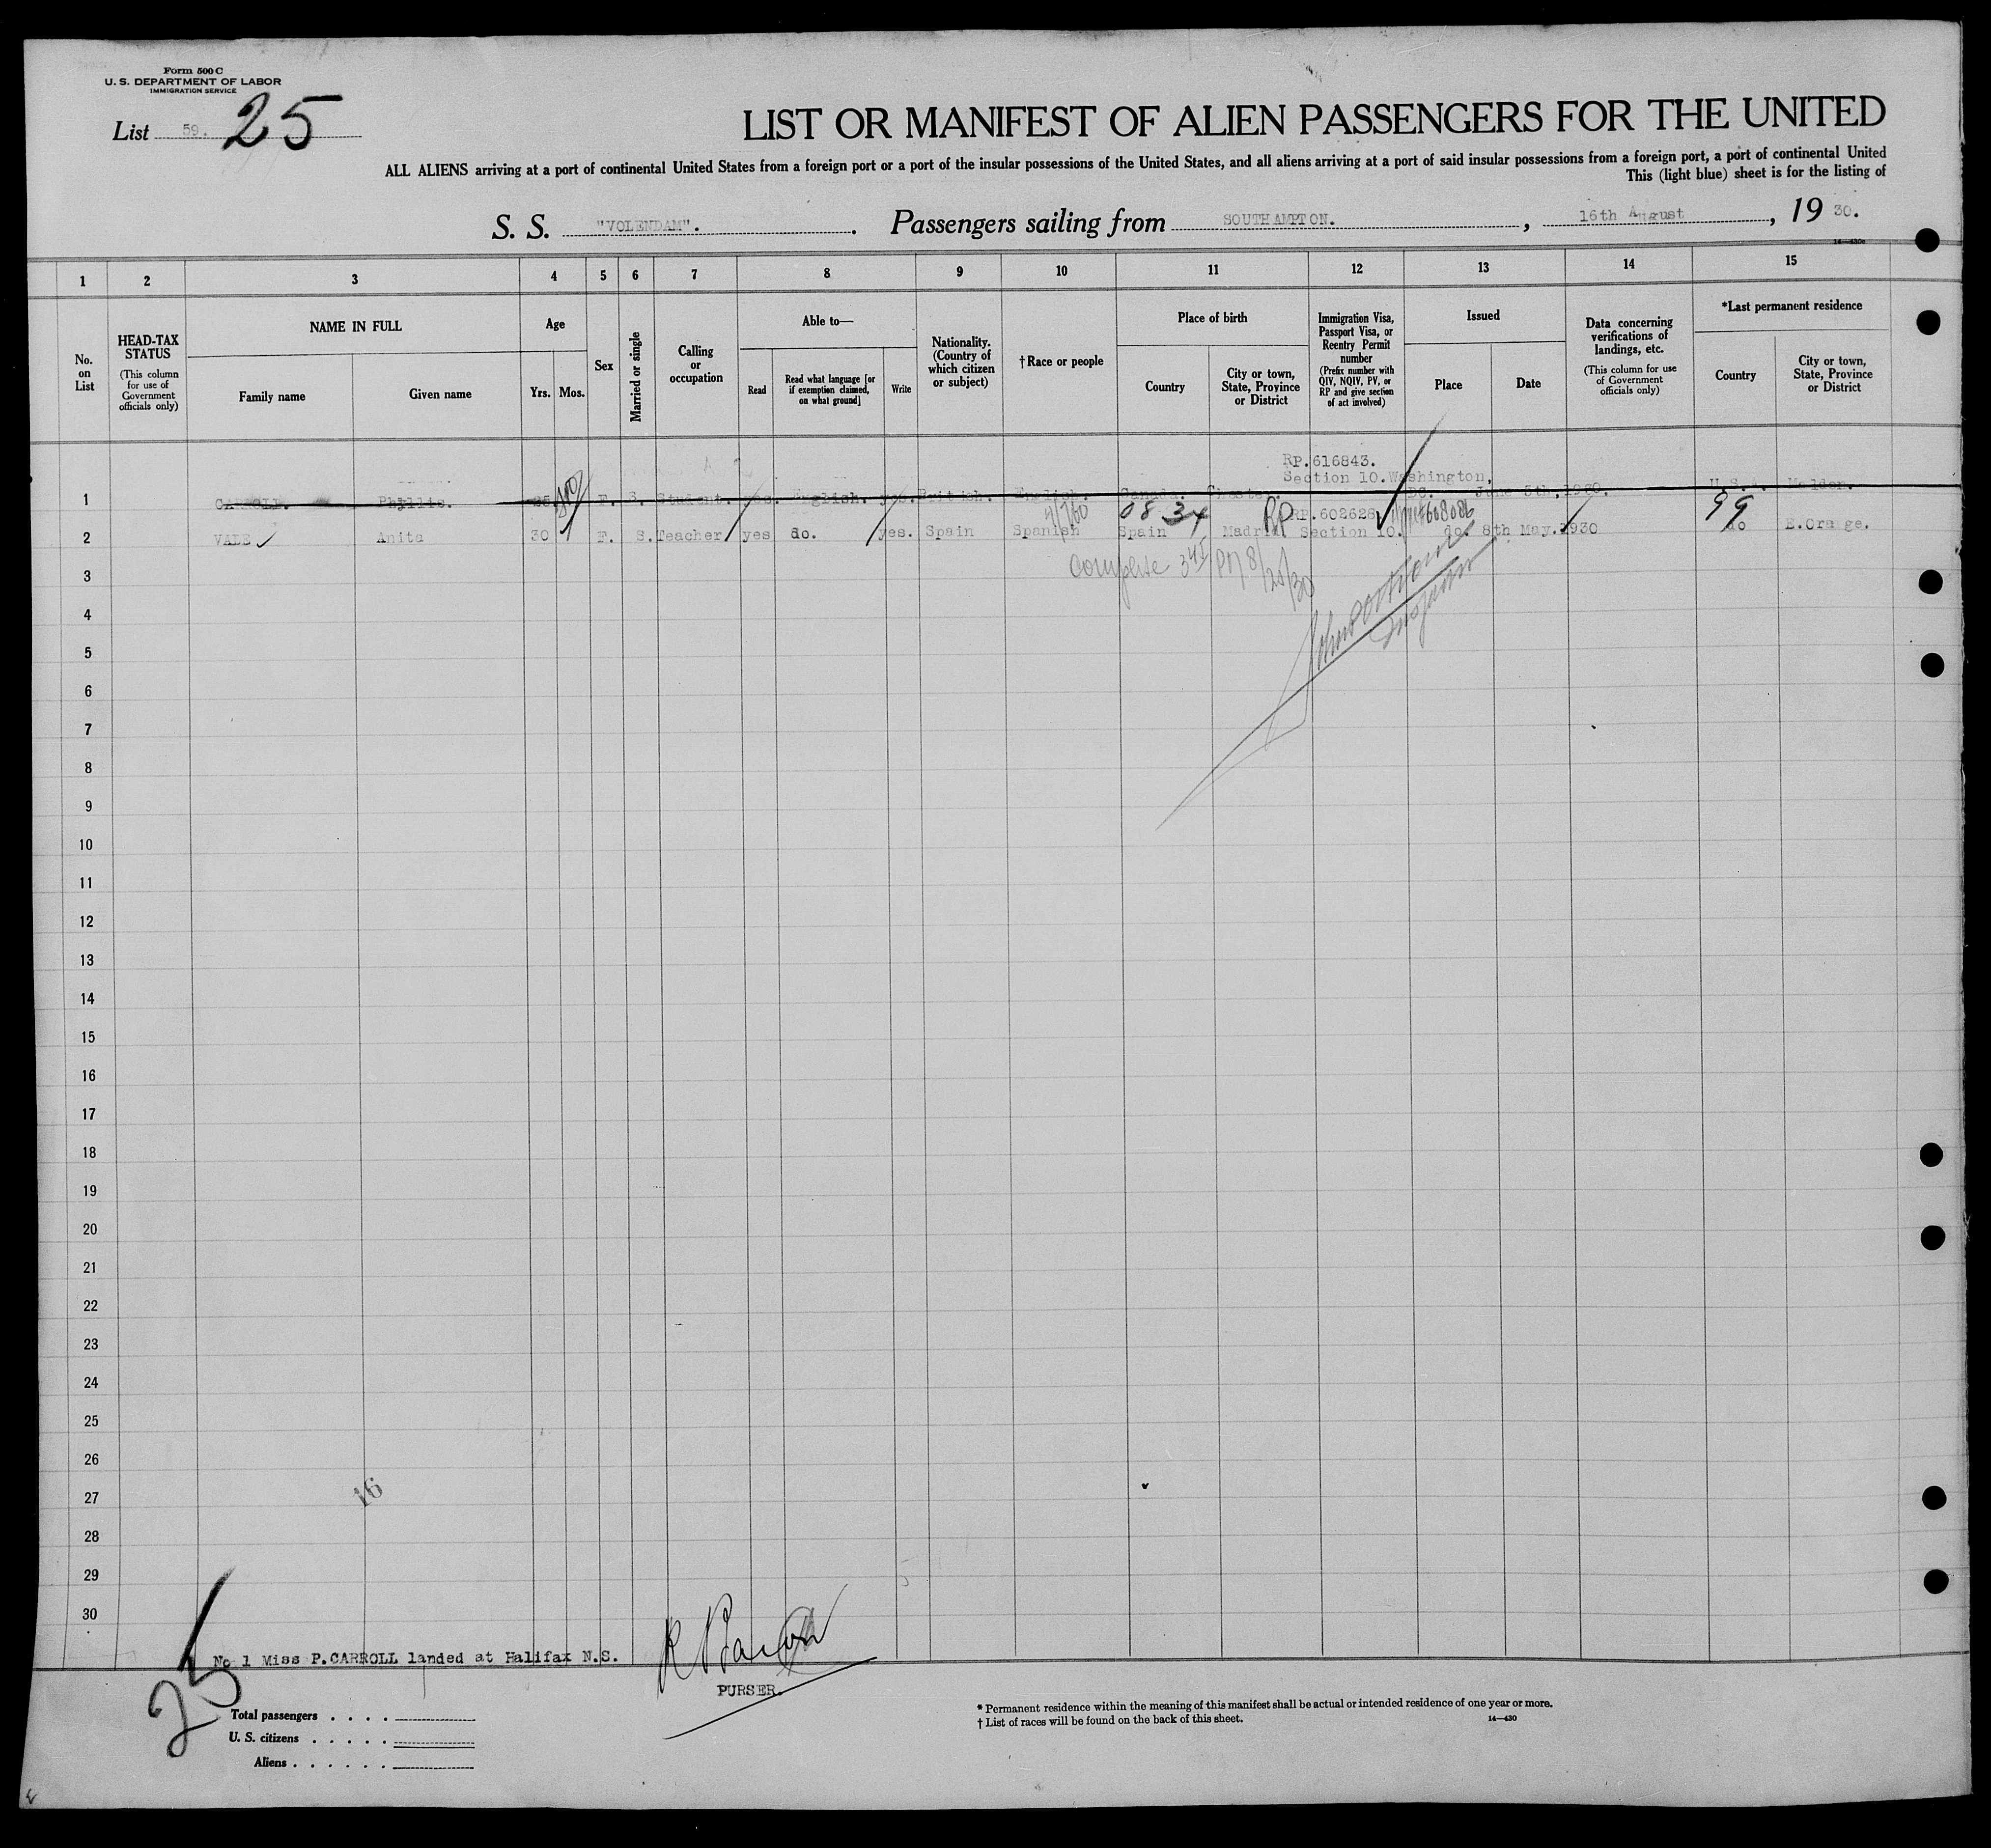 Form 500 C
U. S. DEPARTMENT OF LABOR
IMMIGRATION SERVICE
List 59. 25
LIST OR MANIFEST OF ALIEN PASSENGERS FOR THE UNITED
ALL ALIENS arriving at a port of continental United States from a foreign port or a port of the insular possessions of the United States, and all aliens arriving at a port of said insular possessions from a foreign port, a port of continental United
This (light blue) sheet is for the listing of
S. S. "VOLENDAM". Passengers sailing from SOUTHAMPTON. , 16th August , 19 30.
1 2 3 4 5 6 7 8 9 10 11 12 13 14 15
No. on List
HEAD-TAX STATUS (This column for use of Government officials only)
NAME IN FULL
Family name Given name
Age
Yrs. Mos.
Sex
Married or single
Calling or occupation
Able to—
Read
Read what language [or if exemption claimed, on what ground]
Write
Nationality. (Country of which citizen or subject)
† Race or people
Place of birth
Country
City or town, State, Province or District
Immigration Visa, Passport Visa, or Reentry Permit number (Prefix number with QIV, NQIV, PV, or RP and give section of act involved)
Issued
Place Date
Data concerning verifications of landings, etc. (This column for use of Government officials only)
*Last permanent residence
Country
City or town, State, Province or District
RP.616843.
Section 10. Washington,
1 CARROLL. Phyllis. F. S. Student. yes. English. yes. British. English. Canada. Chester. DC. June 5th, 1930. U.S.A. Malden.
08 34 RP RP.602628 99
2 VALE Anita 30 F. S. Teacher yes do. yes. Spain Spanish Spain Madrid Section 10. do. 8th May. 1930 do E.Orange.
3 Complete 8/25/30
4 Inspector
5
6
7
8
9
10
11
12
13
14
15
16
17
18
19
20
21
22
23
24
25
26
27 16
28
29
30
No 1 Miss P.CARROLL landed at Halifax N.S.
PURSER.
25
Total passengers . . . .
U. S. citizens . . . . .
Aliens . . . . . .
* Permanent residence within the meaning of this manifest shall be actual or intended residence of one year or more.
† List of races will be found on the back of this sheet.
14—430